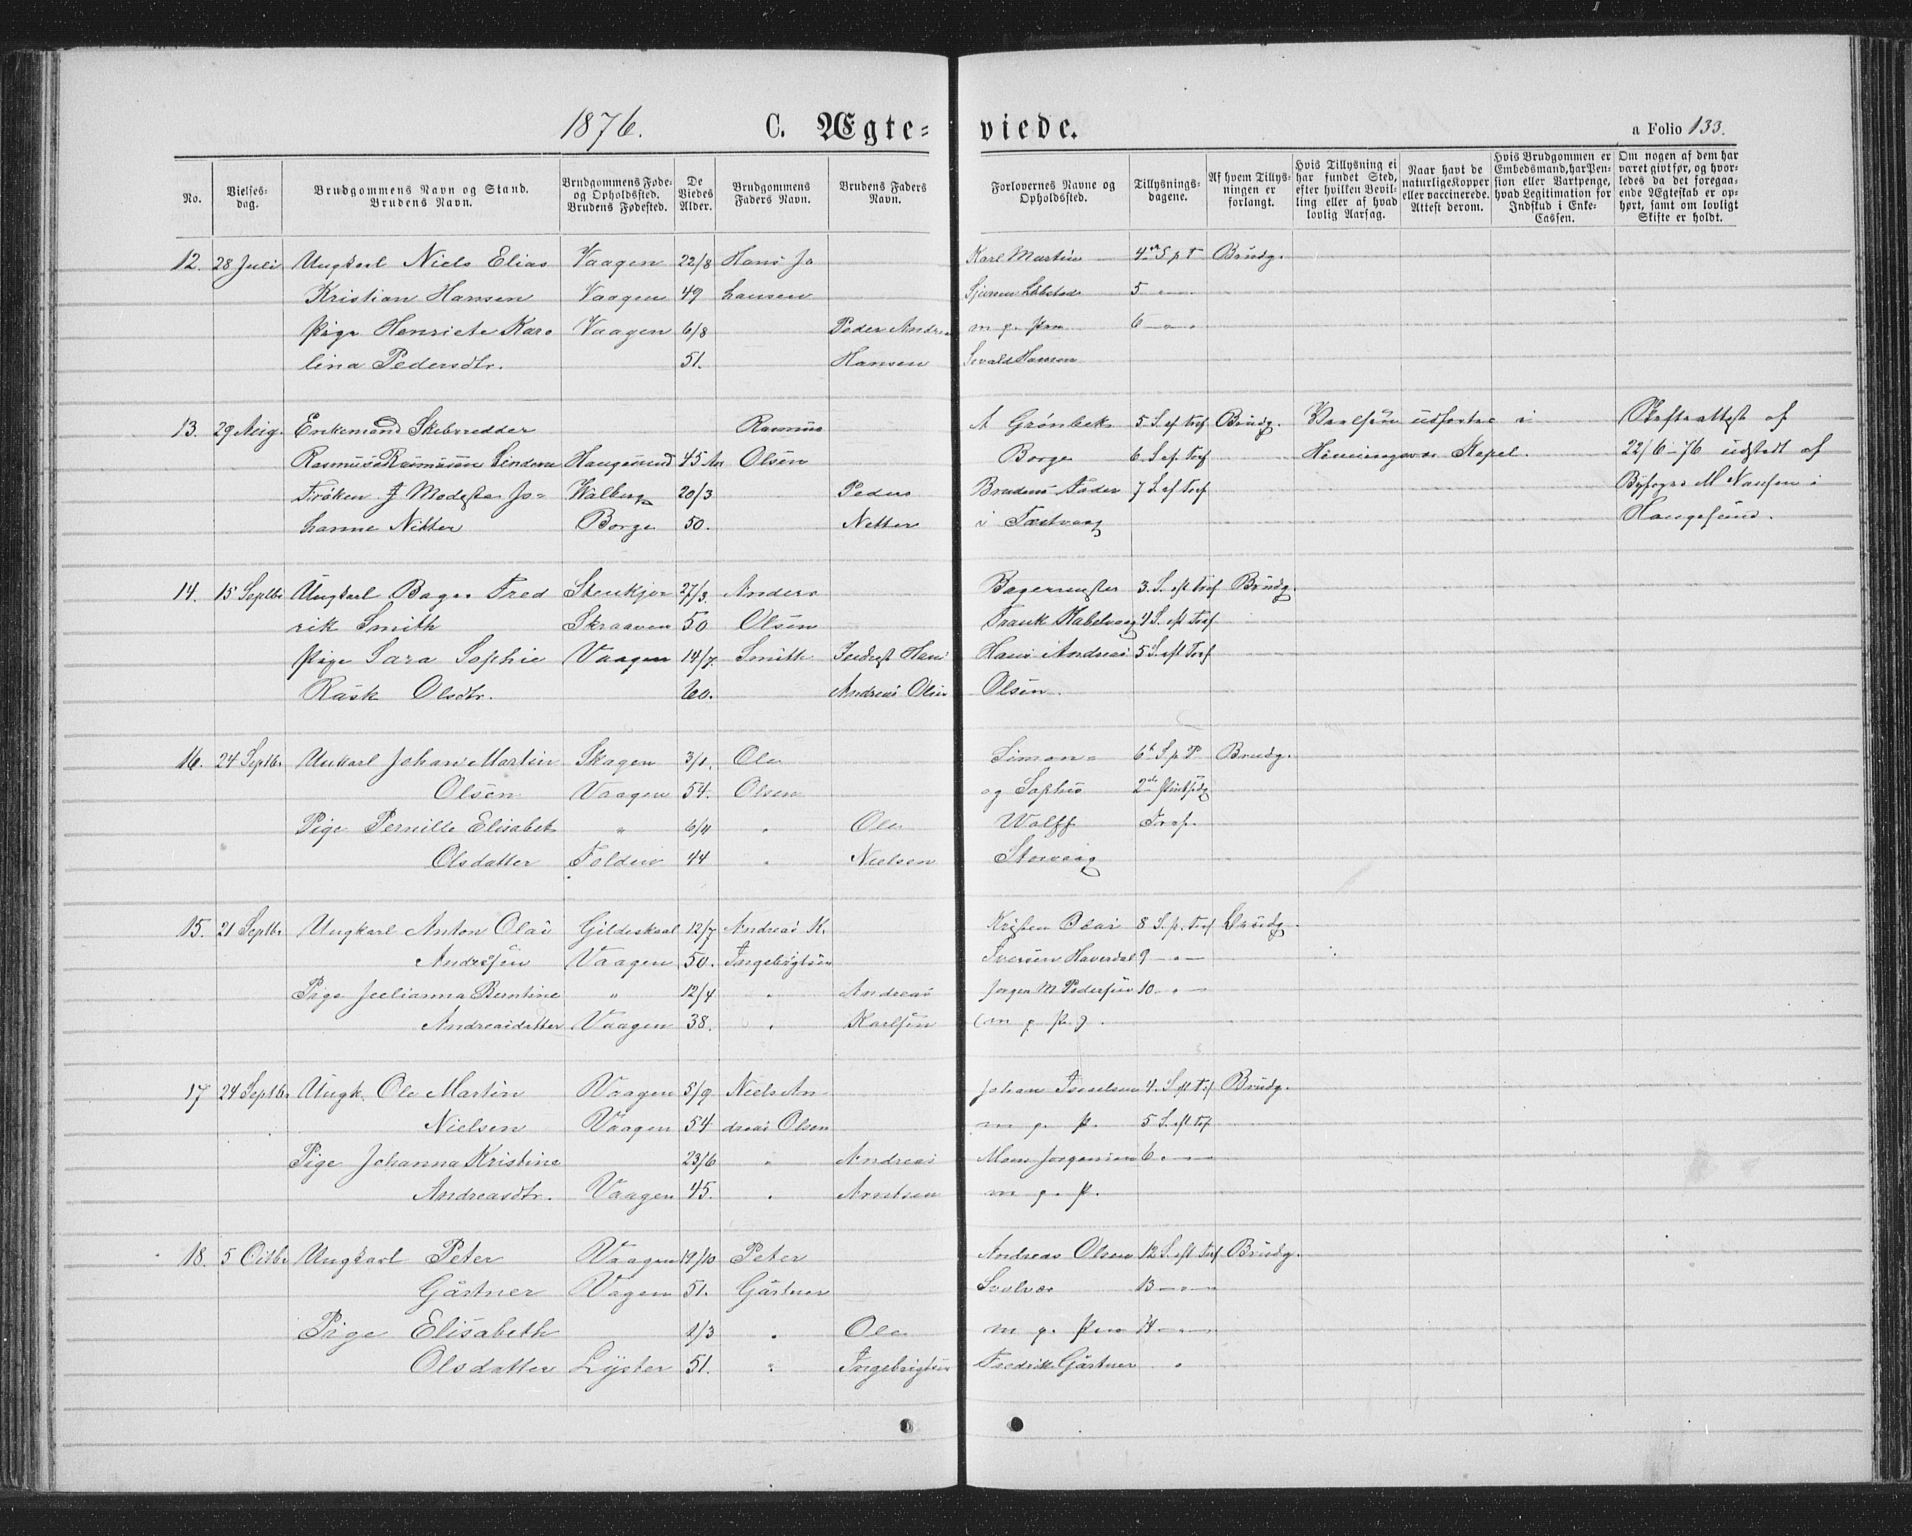 1876. C. Ægte= viede. a Folio 133.
No.
Vielses-
dag.
Brudgommens Navn og Stand.
Brudens Navn.
Brudgommens Føde-
og Opholdssted.
Brudens Fødested.
De
Viedes
Alder.
Brudgommens
Faders Navn.
Brudens Faders
Navn.
Forlovernes Navne og
Opholdssted.
Tillysnings-
dagene.
Af hvem Tillys-
ningen er
forlangt.
Hvis Tillysning ei
har fundet Sted,
efter hvilken Bevil-
ling eller af hvad
lovlig Aarsag.
Naar havt de
naturlige Kopper
eller vaccinerede.
Attest derom.
Hvis Brudgommen er
Embedsmand, har Pen-
sion eller Vartpenge,
hvad Legitimation for
Indskud i Enke-
Cassen.
Om nogen af dem har
været givt før, og hvor-
ledes da det foregaa-
ende Ægteskab er op-
hørt, samt om lovligt
Skifte er holdt.
12. 28 Juli Ungkarl Niels Elias Vaagen 22/8 Hans Jo Karl Martin 4de S p T Brudg.
Kristian Hansen Vaagen 49 hansen 5 " 
Pige Henriete Karo Vaagen 6/8 Peder Andre m g. Pro 6 " 
lina Pedersdtr. 51. Hansen Sivald Hansen
13. 29 Aug. Enkemand Skibsredder Rasmus A Grønbek 5 S. ef Tref Brudg. Vielsen udførtes i Skifteattest af
Rasmus Rasmussen Haugesund 45 Aar Olsen Borge 6 S. ef. Tref Henningsvær Kapel. 22/6-76 udstedt af
Frøken J Modeste Jo= Walberg 20/3 Peder Brudens Fader 7 S. ef Tref Byfoged M Nansen i
hanne Nitter Borge 50. Nitter i Haugesund.
14. 15 Septbr Ungkarl Bager Fred Stenkjør 27/3. Anders Bagermester 3. S. eft Tref Brudg.
rik Smith Skraaven 50 Olsen Frank Kabelvaag 4 S. eft Tref
Pige Sara Sophie Vaagen 14/7. Smith Hans Hans Andreas 5 S. eft Tref
Rask Olsdtr. 60. Andreas Olsen Olsen.
16. 24 Septbr. Unkarl Johan Martin Skagen 3/1. Ole Simon = 6te S p T Brudg.
Olsen Vaagen 54. Olsen og Sophus 2den
Pige Pernille Elisabet " 6/4 " Ole Wolff Tref.
Olsdatter Folden 44 " Nielsen Storvaag
15. 21 Septbr Ungkarl Anton Olai Gildeskaal 12/7 Andreas K. Kristen Olai 8 S. p. Tref Brudg.
Andresen Vaagen 50. Ingebrigtsen Iversen Haverdal 9 "
Pige Julianna Berntine " 12/4 " Andreas Jørgen M Pedersen 10 "
Andreasdatter Vaagen 38. " Karlsen (m g. P.)
17 24 Septbr Ungk. Ole Martin Vaagen 5/9 Niels An Johan 4. S eft Tref Brudg.
Nielsen Vaagen 54 dreas Olsen m g. P. 5 S. eft Tref
Pige Johanna Kristine 23/6 " Andreas Mons Jørgensen 6 "
Andreasdtr. Vaagen 45. " Arntsen m g. P.
18. 5 Octbr Ungkarl Peter Vaagen 19/10 Peter Andreas Olsen 12 S. eft Tref Brudg.
Gärtner Vagen 51. Gärtner Svolvær 13 "
Pige Elisabeth 1/3 " Ole m g. Pro 14 "
Olsdatter Lyster 51. " Ingebrigtsen Fredrik Gärtner "